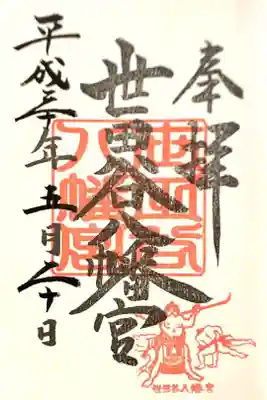 奉拝
世田谷八幡宮
世田谷
八幡宮
平成三十年五月二十日
世田谷八幡宮